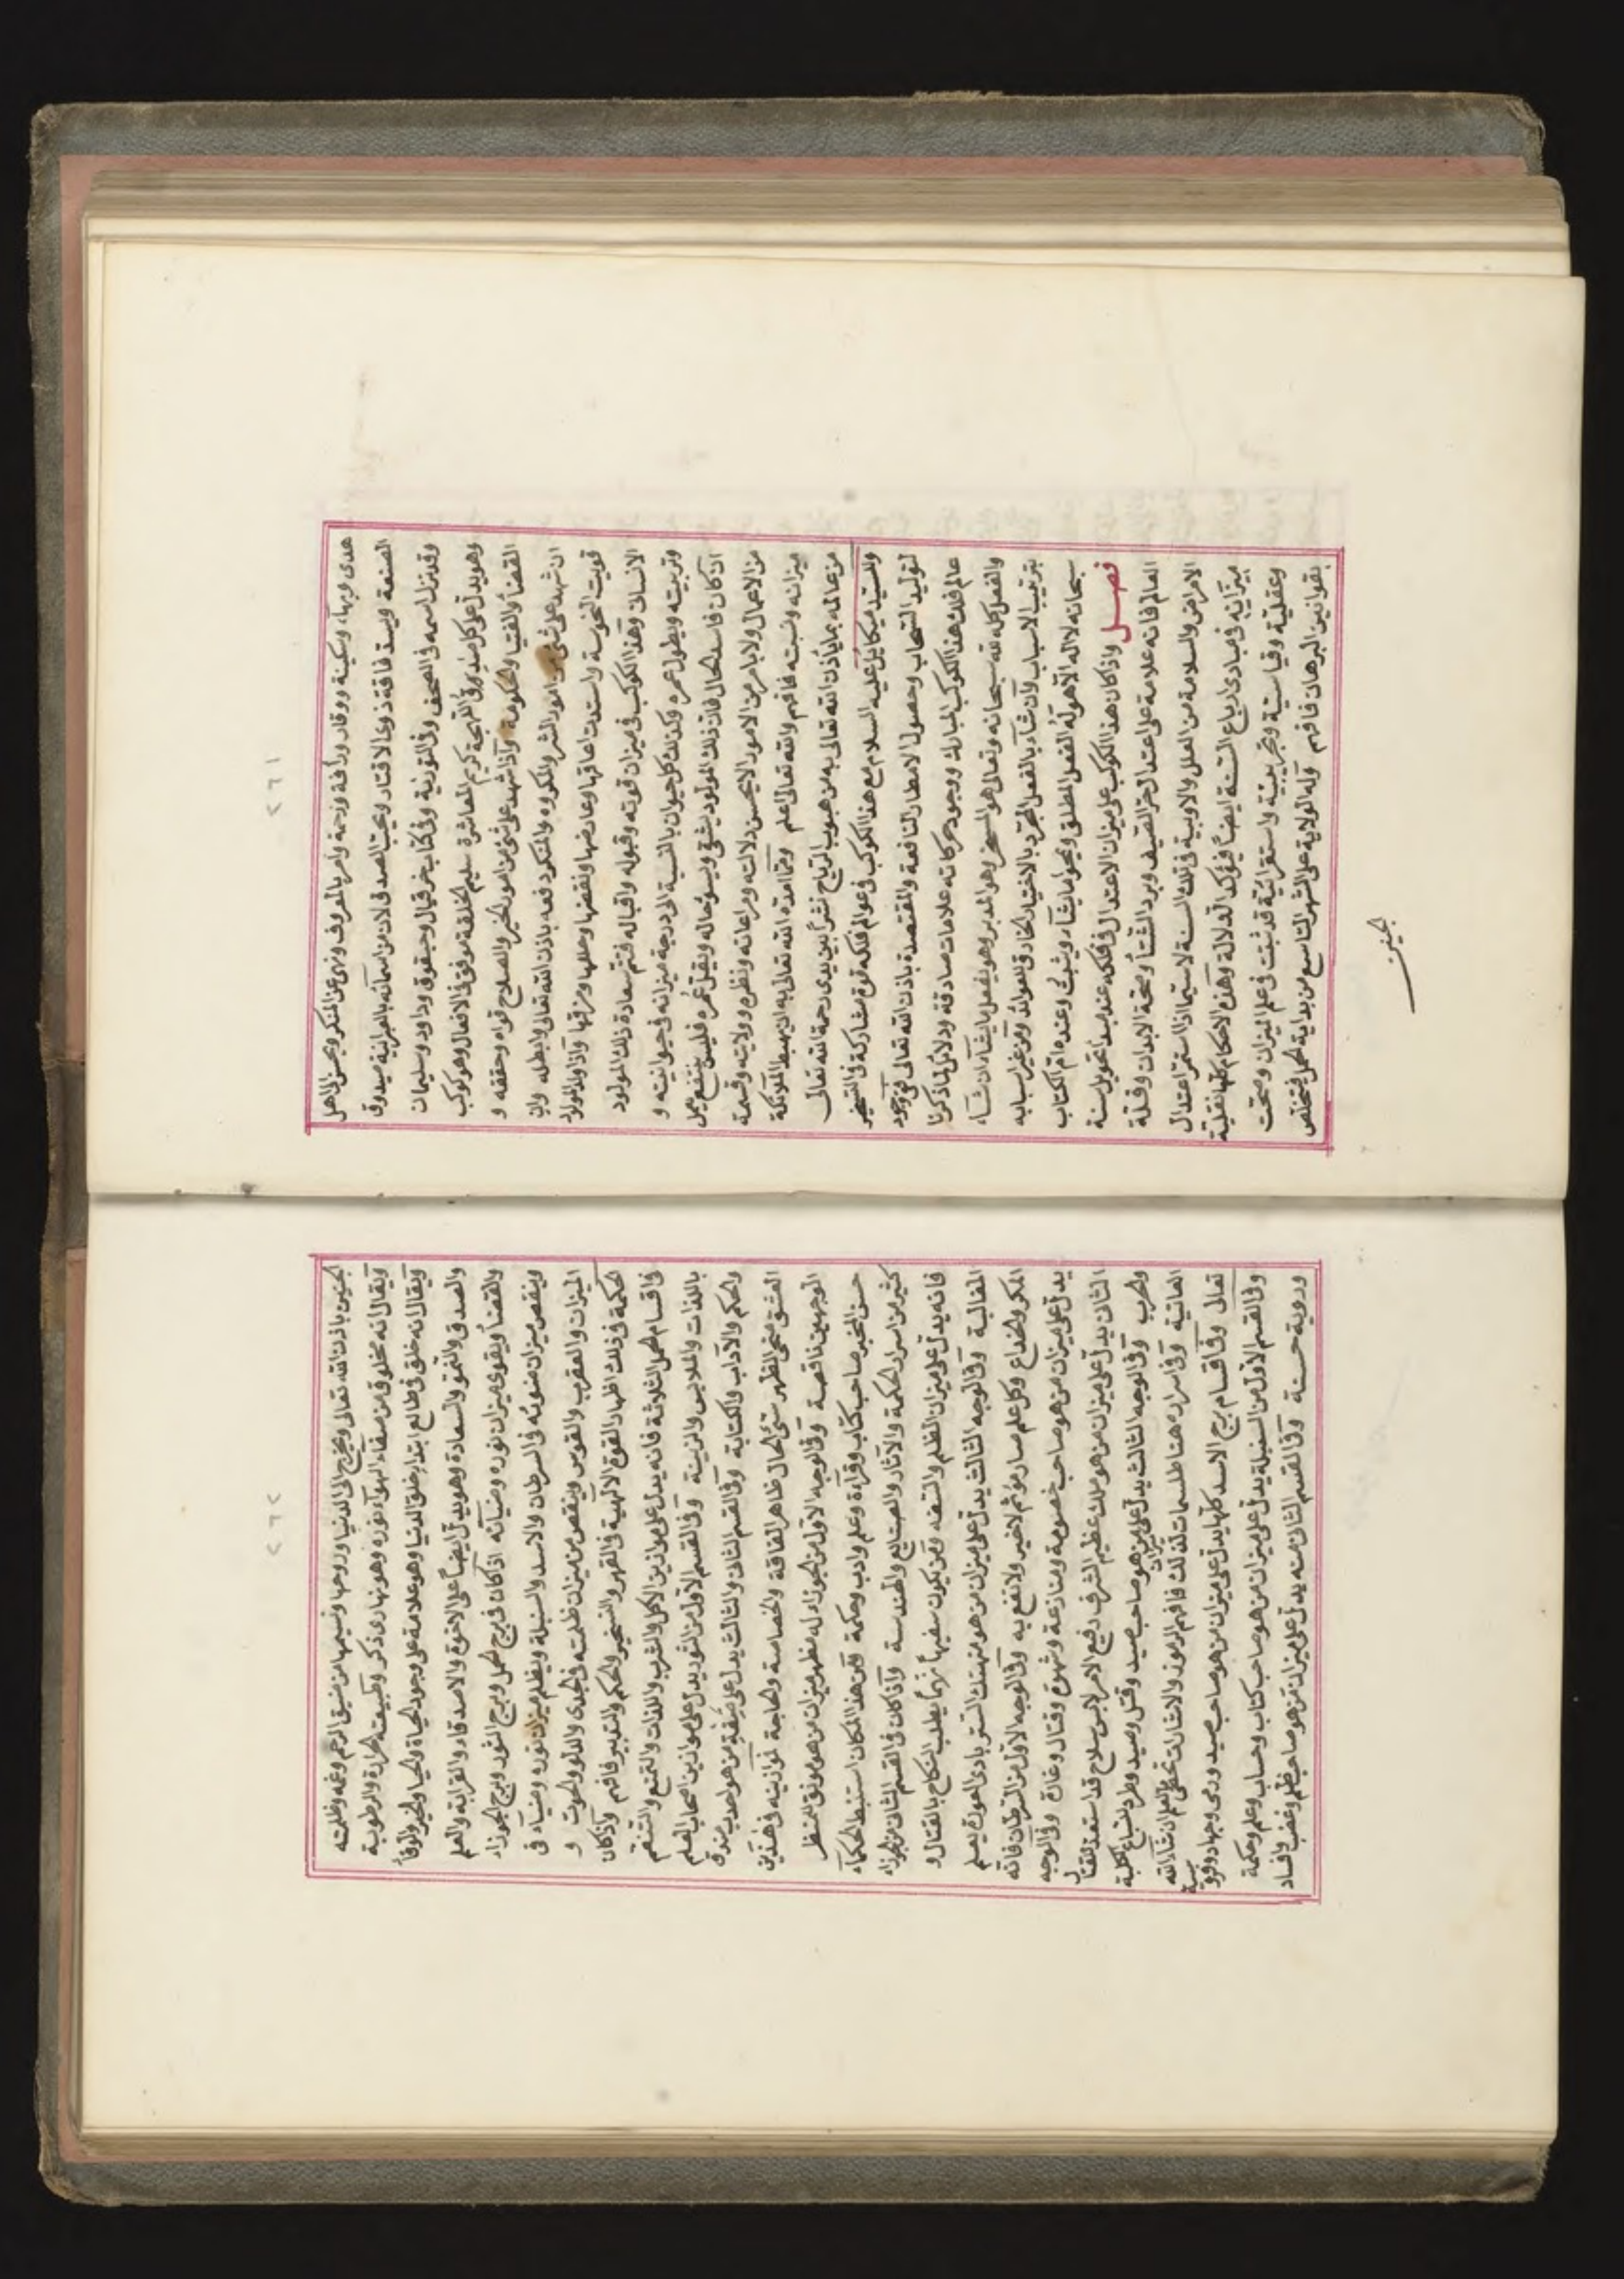 ٢٦١
هدى وبهاء وسكينة ووقار ورأفة ورحمة وامر بالمعروف ونهى عن المنكر ويحسن لاهل
الصنعة ويسد فاقة ذوى الاقتار ويحب الصدق لان من اسمائه بالعبرانية صيدوق
وقد نزل اسمه فى الصحف وفى التورية وفى كتاب حزقيال وحبقوق وداود وسليمان
وهو يدل على كل صدر فى اللهجة كريم المعاشرة سليم الخلقة موفق فى الافعال وهو كوكب
القضآ والفتيا والحكومة واذا شهد على شئ من امور الخير والصلاح قواه وحققه و
ان شهد على شئ من امور الشر والمكروه والمنكر دفعه باذن الله تعالى وابطله وان
قويت النحوسة واستدت اعاقها وعارضها ونقضها وحللها ومزقها واذا ولد المولود
الانسان وهذا الكوكب فى ميزان قوته وقبوله واقباله فتتم سعادة ذلك المولود
وتربيته ويطول عمره وكذلك كل حيوان بالنسبة الى درجة ميزانه فى حيوانيته و
ان كان فاسد الحال فان ذلك المولود يشقى ويسوء حاله ويقل عمره فليس ينتفع بعمل
من الاعمال ولا بامر من الامور الا يحسن دلالته ومراعاته ونظره وولايته وقسمة
ميزانه ونسبته فافهم والله تعالى اعلم ومما امده الله تعالى به ان يهبط الملائكة
من عالمه بما يأذن الله تعالى به من هبوب الرياح نشرا بين يدى رحمة الله تعالى
والسيد ميكائيل عليه السلام مع هذا الكوكب فى عوالم فلكه قوة مشاركة فى التسخير
لتوليد السحاب وحصول الامطار النافعة والمقتصدة باذن الله تعالى فى وجود
عالم فلك هذا الكوكب المبارك ووجود حركاته علامات صادقة ودلائل لما ذكرنا
والفعل كله لله سبحانه وتعالى هو المسخر وهو المدبر وهو يفعل ما يشآء ان شآء
بترتيب الاسباب وان شآء بالفعل المجرد بالاختيار الخارق للعوائد ومن غير اسبابه
سبحانه لا اله الا هو له الفعل المطلق ويمحوا ما يشآء ويثبت وعنده ام الكتاب
فصل واذا كان هذا الكوكب على ميزان الاعتدال فى فلكه عند مبدا تحويل سنة
العالم فانه علامة على اعتدال حر الصيف وبرد الشتآ وصحة الابدان وقلة
الامراض والسلامة من العلل والاوبية فى تلك السنة لا سيما اذا استمر اعتدال
ميزانه فى مبادى ارباع السنة ايضا فيؤكد الدلالة وهذه الاحكام كلها نقلية
وعقلية وقياسية وتجريبية واستقرائية قد ثبتت فى علم الميزان وصحت
بقوانين البرهان فافهم وله الولاية على الشهر التاسع من بداية الحمل فيتخلص
الجنين
٢٦٢
الجنين باذن الله تعالى ويخرج الى الدنيا وروحها ونسيمها من ضيق الرحم وغمه وظلمته
ويقال انه مخلوق من صفاء الهوآء ونوره وهو نهارى ذكر وطبيعته الحرارة والرطوبة
ويقال انه خلق فى طالع ابتدا خلق الدنيا وهو علامة على وجود الحياة والحيا والخير والوفآ
والصدق والنمو والسعادة وهو يدل ايضا على الاخوة والاصدقاء والقرابة والعلم
والقضآ ويقوى ميزان نوره وضيآئه اذا كان فى برج الحمل وبرج الثور وبرج الجوزاء
وينقص ميزان ضوئه فى السرطان والاسد والسنبلة ويظلم ميزان نوره وضياه فى
الميزان والعقرب والقوس وينقص من ميزان ظلمته فى الجدى والدلو والحوت و
الحكمة فى ذلك اظهار القوة الالهية فى القهر والتسخير والحكم والتدبير فافهم واذا كان
فى اقسام الحمل الثلاثة فانه يدل على موازين الاكل والشرب واللذات والتمتع والتنعم
باللذات والملابس والزينة وفى القسم الاول من الثور يدل على موازين اصحاب العلم
والحكم والآداب والكتابة وفى القسم الثانى والثالث يدل على صفة من هو احدب مندق
العشق منحى الظهر سئ الحال ظاهر الفاقة والخصاصة والحاجة فوازينه فى هذين
الوجهين ناقصة وفى الوجه الاول من الجوزاء له مظهر ميزان من هو مونق المنظر
حسن المخبر صاحب كتاب وقرآءة وعلم وادب وحكمة ومن هذا المكان استنبط الحكمآء
كثير من اسرار الحكمة والآثار والصنايع والهندسة واذا كان فى القسم الثانى من الجوزاء
فانه يدل على ميزان الظلم والسفه ومن يكون سفيها نهما يطلب النكاح بالقتال و
المغالبة وفى الوجه الثالث يدل على ميزان من هو منهتك الستر بادى العورة يعلم
المكر والخداع وكل علم صار مؤثم لا خير ولا نفع به وفى الوجه الاول من السرطان فانه
يدل على ميزان من هو صاحب خصومة ومنازعة وشهوة وقتال وغارة وفى الوجه
الثانى يدل على ميزان من هو ملك عظيم الشرف رفيع الامر لابس سلاح قد استعد للقتال
والحرب وفى الوجه الثالث يدل على ميزان من هو صاحب صيد وقتل وصيد وطرد للسباع الكلبة
العاتية وفى اسراره هنا طلسمات لذلك فافهم الرموز والاشارات تحظى بالعلم ان شاء الله
تعالى وفى اقسام برج الاسد كلها يدل على ميزان من هو صاحب صيد ورمى وجهاد وفروسية
وفى القسم الاول من السنبلة يدل على ميزان من هو صاحب كتاب وحساب وعلم وحكمة
وروية حسنة وفى القسم الثانى منه يدل على ميزان من هو صاحب ظلم وغضب وافساد